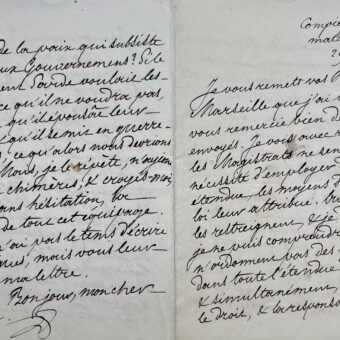 de la paix qui subsiste
eux Gouvernemens? Si le
Sarde vouloit les
ce qu'il ne voudra pas
qu'il épousât leur
qu'il se mit en guerre
ce qu'alors nous devrions
Nous, je le répète, n'ayons
chimères, & croyés-moi,
sans hésitation,
de tout cet équivoque.
n'ai pas le tems d'écrire
mais vous leur
ma lettre.
Bonjour, mon cher
Compiè
Je vous remett vos
Marseille que j'ai
vous remercie bien de
envoyés. Je vois avec
les Magistrats ne sen
nécessité d'employer
étendue, les moyens d
loi leur attribue.
restreignent, & je
je ne puis comprendre
n'ordonnent pas des
dans toute l'étendue
& simultanément,
le droit, & la responsa